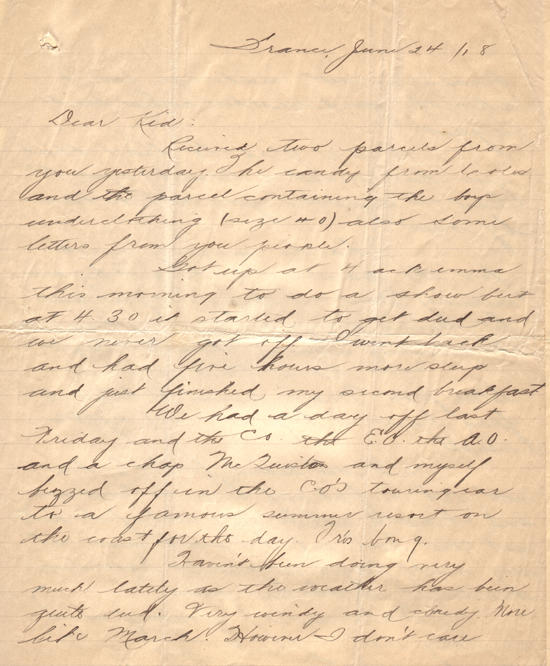 France, June 24/18
Dear Kid:
Received two parcels from
you yesterday The candy from Coles
and the parcel containing the boys
underclothing (size 40) also some
letters from you people.
Got up at 4 ack emma
this morning to do a show but
at 4.30 it started to get dud and
we never got off I went back
and had five hours more sleep
and just finished my second breakfast
We had a day off last
Friday and the C.O. the E.O. the A.O.
and a chap McQuistan and myself
bizzed off in the C.O's touring car
to a famous summer resort on
the coast for the day. Trés bong.
Havn't been doing very
much lately as the weather has been
quite dud. Very windy and cloudy. More
like March. However I don't care